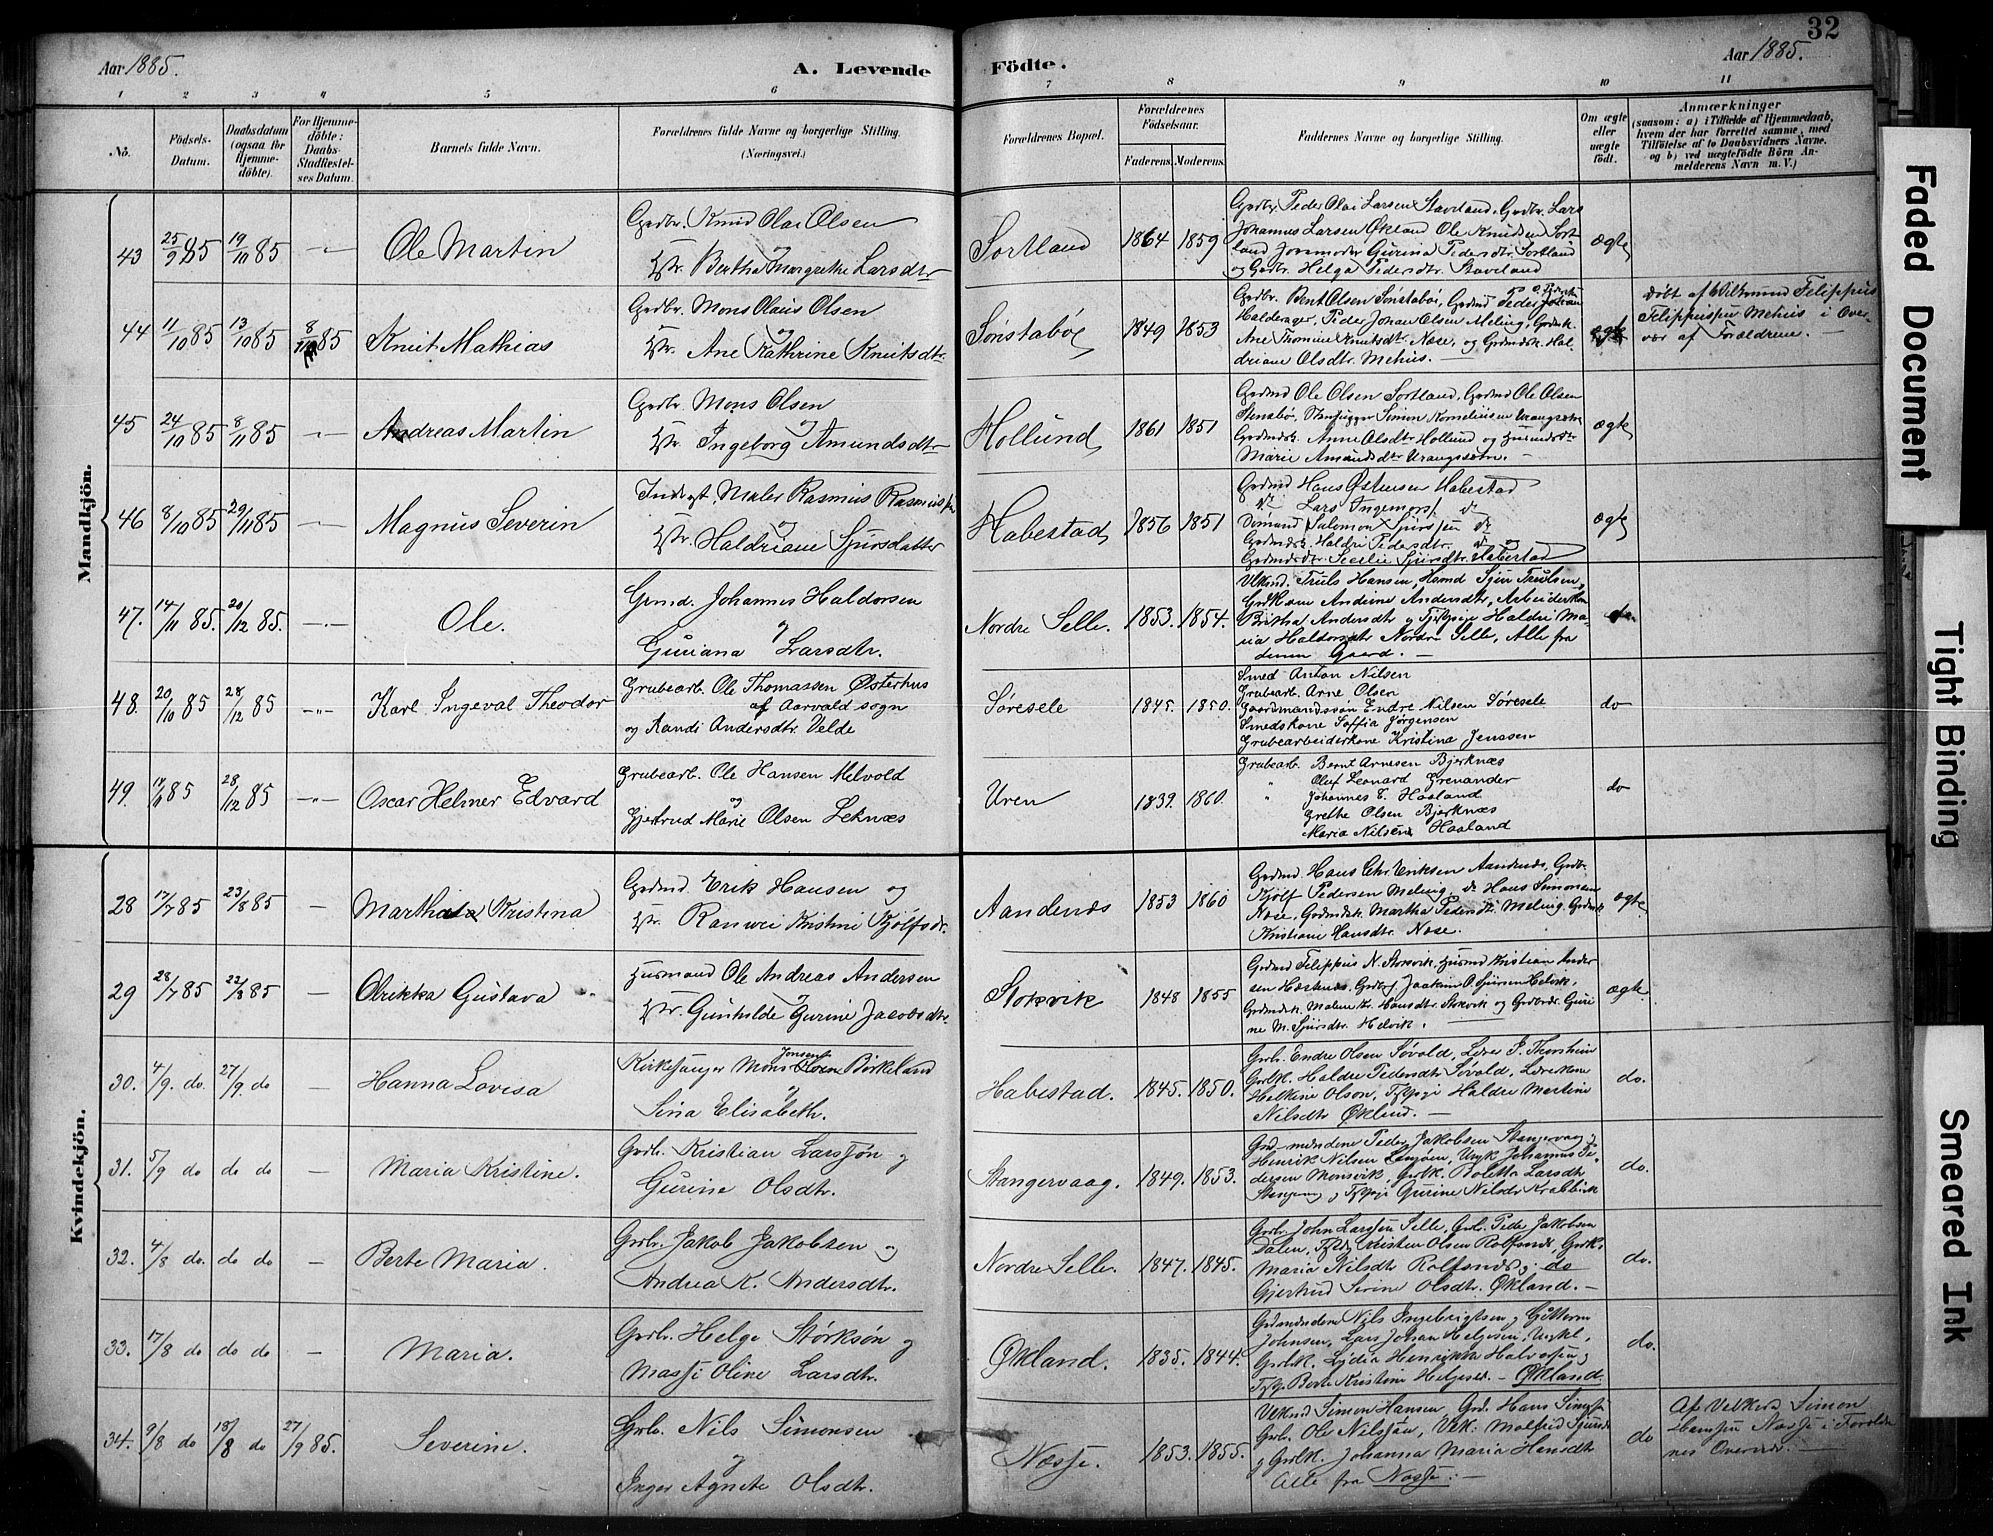 32
Aar 1885.
A. Levende
Födte.
Aar 1885.
1 2 3 4 5 6 7 8 9 10 11
No.
Födsels-
Datum.
Daabsdatum
(ogsaa for
Hjemme-
döbte).
For Hjemme-
döbte:
Daabs-
Stadfæstel-
ses Datum.
Barnets fulde Navn.
Forældrenes fulde Navne og borgerlige Stilling.
(Næringsvei.)
Forældrenes Bopæl.
Forældrenes
Födselsaar.
Faderens. Moderens.
Faddernes Navne og borgerlige Stilling.
Om ægte
eller
uægte
født.
Anmærkninger
(saasom: a) i Tilfælde af Hjemmedaab,
hvem der har forrettet samme, med
Tilföielse af to Daabsvidners Navne.
og b) ved uægtefödte Börn An-
melderens Navn m. V.)
Mandkjön.
43 25/9 85 19/10 85 Ole Martin
Grdbr. Knud Olai Olsen
og
Hstr. Bertha Margrethe Larsdtr
Sortland 1864 1859
Grdbr. Peder Olai Larsen Staveland, Grdbr. Lars
Johannes Larsen Økland Ole Knudsen Sort-
land Jordmoder Gurina Pedersdtr. Sortland
og Grdbr. Helga Pedersdtr. Staveland
ægte
44 11/10 85 13/10 85 8/11 85 Knut Mathias
Grdbr. Mons Olaus Olsen
og
Hstr. Ane Kathrine Knutsdtr.
Sønstabø 1849 1853
Grdbr. Bent Olsen Sønstabø, Grdmd Peder Johan
Halderager, Peder Johan Olsen Meling, Grdmdk.
Ane Thomine Knutsdtr. Nose, og Grdmdsk. Hal-
driane Olsdtr. Mehus.
ægte
Døbt af Vilkmand Filippus
Filippussen Mehus i Over-
vær af Forældrene.
45 24/10 85 8/11 85 Andreas Martin
Grdbr. Mons Olsen
og
Hstr. Ingeborg Amundsdtr
Hollund 1861 1851
Grdmd Ole Olsen Sortland, Grdmd Ole Olsen
Stensbø, Simon Korneliussen Urangsvåg
Grdmdsk. Anne Olsdtr Hollund og
Marie Amundsdtr Urangsvåg.
ægte
46 8/10 85 29/11 85 Magnus Severin
Maler Rasmus Rasmussen
og
Hstr. Haldriane Sjursdatter
Habestad 1856 1851
Grdmd Hans Østensen Habestad
Lars Ingemors. do
Sømand Salomon Sjurssen do
Grdmdsk. Haldri Pedersdtr. do og
Grdmdsdtr. Secilie Sjursdtr. Habestad
ægte
47. 14/11 85. 20/12 85. Ole.
Grmd. Johannes Haldorsen
og
Guriana Larsdtr.
Nordre Selle. 1853. 1854.
Vlkmd. Truls Hansen, Hsmd Sjur Trulsen,
Grdkone Andrine Andersdtr, Arbeiderkone
Britha Andersdtr og Tjpige Haldre Ma-
ria Haldorsdtr Nordre Selle, Alle fra
denne Gaard.
do.
48. 20/10 85 28/12 85 Karl Ingeval Theodor
Grubearb. Ole Thomassen Østerhus
af Aarvald sogn
og Randi Andersdtr. Velde
Søresele 1845. 1850.
Smed Anton Nilsen
Grubearb. Arne Olsen
Gaardmandssøn Endre Nilsen Søresele
Smedskone Soffia Jørgensen
Grubearbeiderkone Kristina Jenssen
do
49. 85 28/12 85 Oscar Helmer Edvard
Grubearb. Ole Hansen Melvold
og
Gjertrud Marie Olsen Leknæs
Uren 1839. 1860.
Grubearb. Bernt Arnesen Bjerknæs
" Oluf Leonard Grenander
" Johannes E. Haaland
Grethe Olsen Bjerknæs
Maria Nilsen Haaland
do
Kvindekjön.
28 17/7 85 23/8 85 Martha Kristina
Grdmd. Erik Hansen og
Hstr. Ranvei Kristine Kjølfsdr.
Aandenæs 1853 1860
Grdmd. Hans Chr. Eriksen Aandenæs, Grdbr.
Kjølf Pedersen Meling, do Hans Simonsen
Nøse, Grdmdsk. Martha Pedersdtr. Meling, Grdmdsk
Kristiane Hansdtr. Nøse.
ægte
29 28/7 85 23/8 85 Olrikka Gustava
Husmand Ole Andreas Andersen
og
Hstr. Gunhilde Gurine Jacobsdtr.
Stokvik 1848 1855
Grdmd Filippus N. Stokvik, Husmd Kristian Ander-
sen Hæstnæs, Grdbrsf. Joakim O. Sjursen Helvik,
Grdmdsk. Malene Kr. Hansdtr. Stokvik og Grdbrdtr. Guri-
ne M. Sjursdtr. Helvik.
ægte
30. 4/9. do. 27/9. do Hanna Lovisa
Kirkesanger Mons Jonsen Børkeland
og
Sina Elisabeth.
Habestad. 1845. 1850.
Grb. Endre Olsen Søvold, Lærer P. Thorstein
Grbk. Haldre Pedersdtr Søvold, Lærerkone
Helkine Olson, Tjpige Haldre Martine
Nilsdtr Økland.
do.
31. 5/9 do do do Maria Kristine.
Grdb. Kristian Larssøn og
Gurine Olsdtr.
Stangervaag. 1849. 1853.
Grdmændene Peder Jakobsen Stangervaag og
Henrik Nilsen, Ungk Johannes Pe-
dersen Monsvik, Grdk. Boletta Larsdtr
og Tjpige Gurine Nilsdr Krabbvik
do.
32. 4/8 do. do do Berte Maria.
Grdb. Jakob Jakobsen og
Andrea K. Andersdtr.
Nordre Selle. 1847. 1845.
Grdb. John Larssen Selle, Grb. Peder Jakobsen
Dalen, Kristen Olsen Rolfsnæs, Grdk.
Maria Nilsdtr Rolfsnæs og do
Gjertrud Sirine Olsdtr. Økland.
do.
33. 17/8 do do do Maria.
Grdb. Helge Størksøn og
Massi Oline Larsdtr.
Økland. 1835. 1844.
Grdmændene Nils Ingebrigtsen og Guttorm
Johnsen, Lars Johan Helgesen, Ungkl.
Grdk. Lydia Henrikka Halvorsen og
Tjp. Berte Kristine Helgesd. Økland.
do.
34. 9/8 do 18/8 do 27/9 85. Severine.
Grb. Nils Simonsen
og
Inger Agnete Olsdtr.
Næsse. 1853. 1855.
Vlkmd Simon Hansen, Grd. Hans Simons.
Grb. Ole Nilssøn, Vlk. Malfrid Sjursdtr
og Grdk. Johanna Maria Hansdtr
Alle fra Næsse.
do
Af Vlkkd Simon
Hanssen Næsse i Foreldre-
nes Overvær.
Faded Document
Tight Binding
Smeared Ink